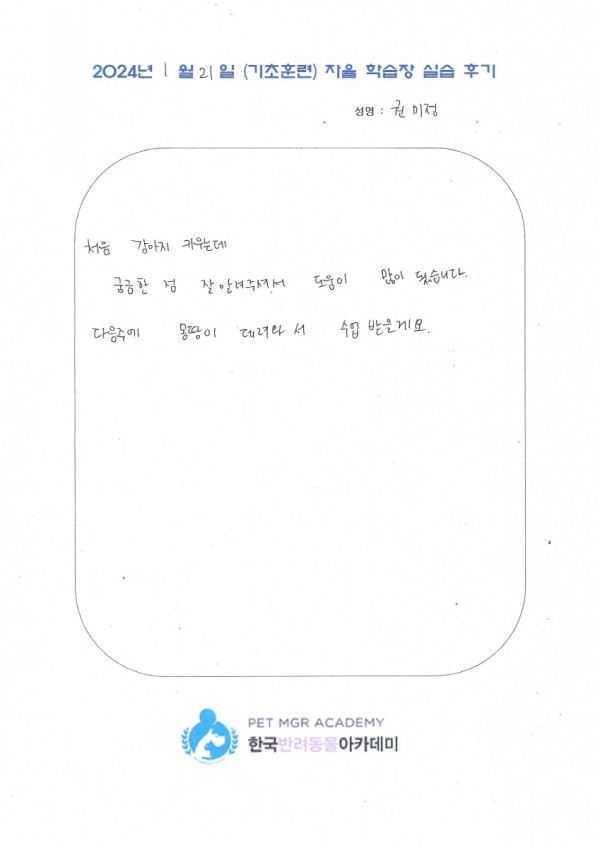 2024년 1월 21일 (기초훈련) 자율 학습장 실습 후기
성명 : 권미정
처음 강아지 키우는데
궁금한 점 잘 알려주셔서 도움이 많이 됐습니다.
다음주에 몽땅이 데려와서 수업 받을게요.
PET MGR ACADEMY
한국반려동물아카데미